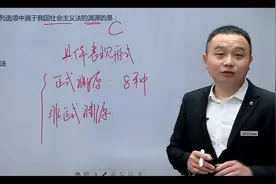 列选项中属于我国社会主义法的渊源的是
C
具体表现形式
正式渊源. 8种
非正式渊源
法